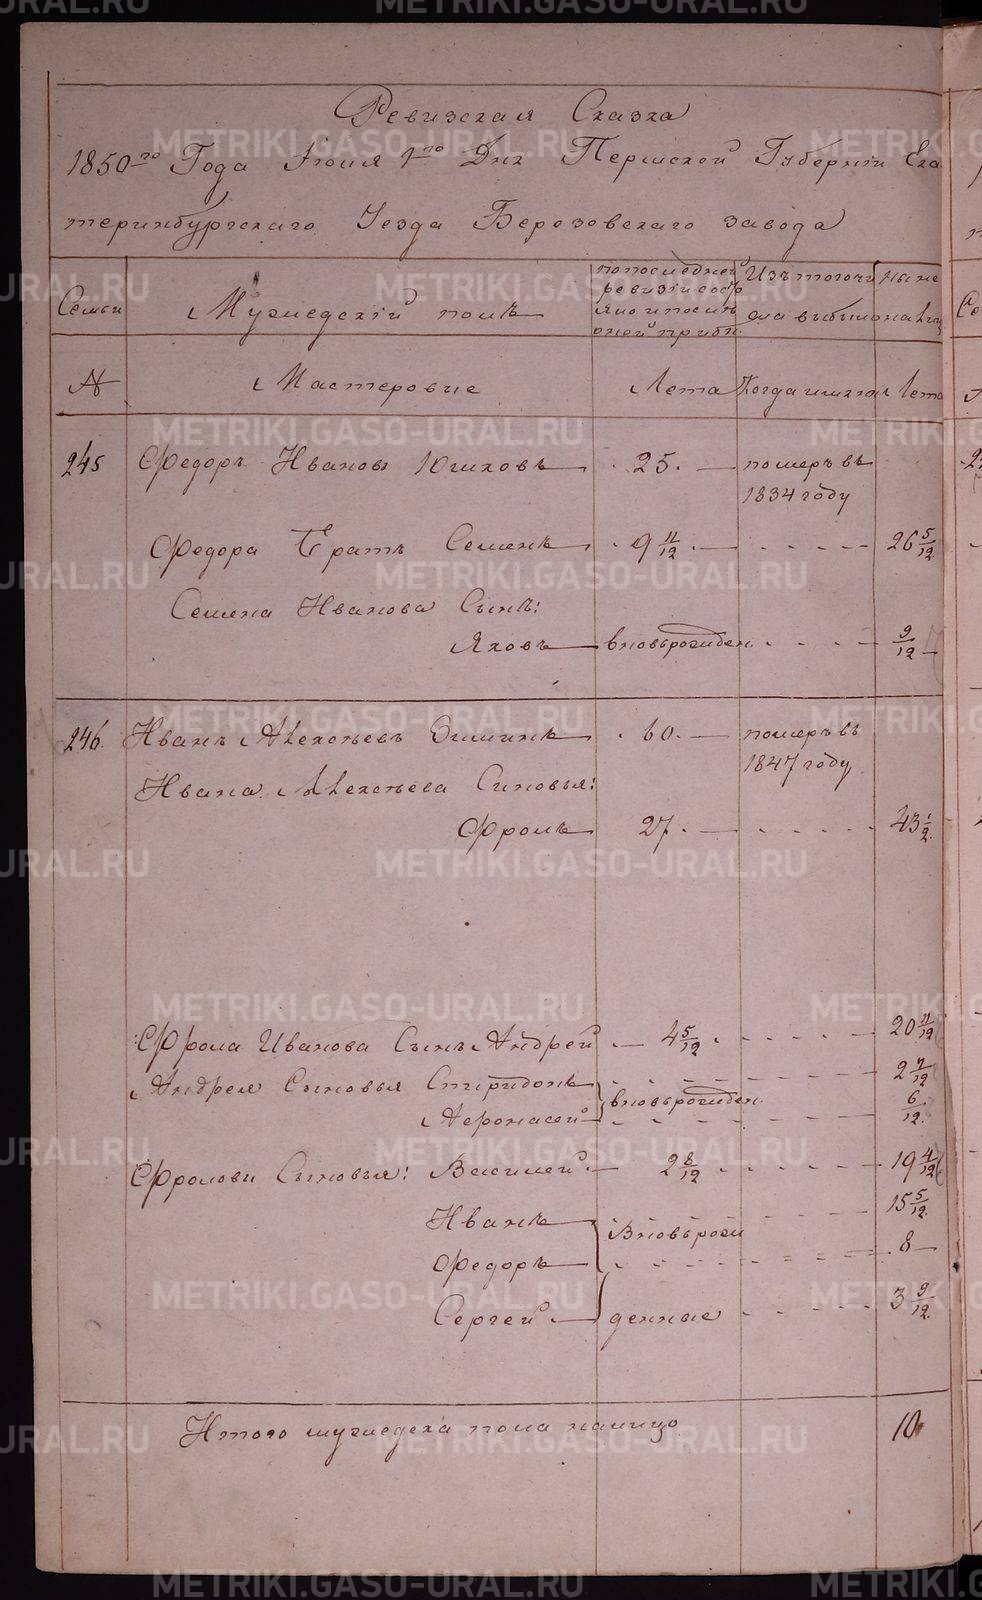 Ревизская Сказка
1850го Года Июня 1го Дня Пермской Губернiи Ека
теринбургскаго Уезда Березовскаго завода
Семьи
Мужедскiй полъ
по последней
ревизiи состо
яло и после
оней прибы.
Изъ того чи
сла выбыло
Ныне
на лицо
№
Мастеровые
Лета
Когда имянно
Лета
245 Федоръ Ивановъ 25. померъ въ
1834 году
Федора братъ Семенъ 9 11/12 26 5/12
Семена Иванова Сынъ:
Яковъ вновьрожден. 9/12
246. Иванъ Алексеевъ Зиминъ 60. померъ въ
1847 году
Ивана Алексеева Синовья:
Фролъ 27. 43 1/2.
Фрола Иванова Сынъ Андрей 4 5/12 20 11/12
Андрея Сыновья Спиридонъ 2 7/12
вновьрожден.
Афонасей 6/12.
Фролови Сыновья: Василей 2 8/12 19 4/12
Иванъ 15 5/12.
Вновьрож
Федоръ 8
Сергей денные 3 9/12.
Итого мужедска пола налицо 10
METRIKI.GASO-URAL.RU